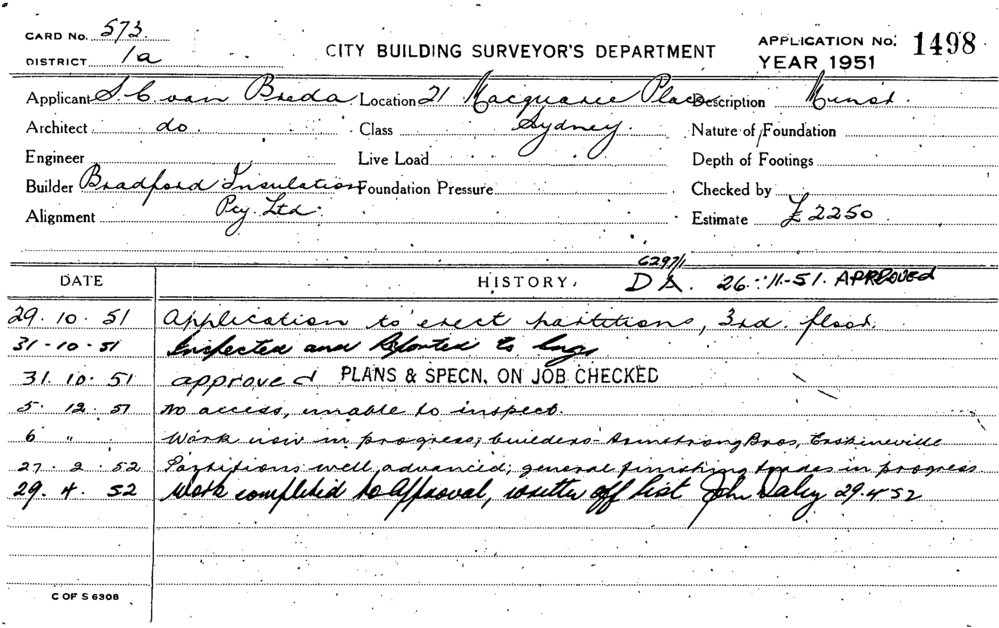 CARD No. 573
DISTRICT 1a
CITY BUILDING SURVEYOR'S DEPARTMENT
APPLICATION No. 1498
YEAR 1951
Applicant S. C. van Breda Location 21 Macquarie Place Description Minor.
Architect do. Class Sydney. Nature of Foundation
Engineer Live Load Depth of Footings
Builder Bradford Insulation Foundation Pressure Checked by
Alignment Pty. Ltd. Estimate £2250
6297/1
DATE HISTORY. D A. 26-11-51. APPROVED
29.10.51 Application to erect partitions, 3rd. floor.
31-10-51 Inspected and Reported to
31.10.51 approved PLANS & SPECN. ON JOB CHECKED
5.12.51 No access, unable to inspect.
6 " Work now in progress; builders - Armstrong Bros, Erskineville
27.2.52 Partitions well advanced; general finishing trades in progress
29.4.52 Work completed to approval, written off list John Daley 29.4.52
C OF S 6308